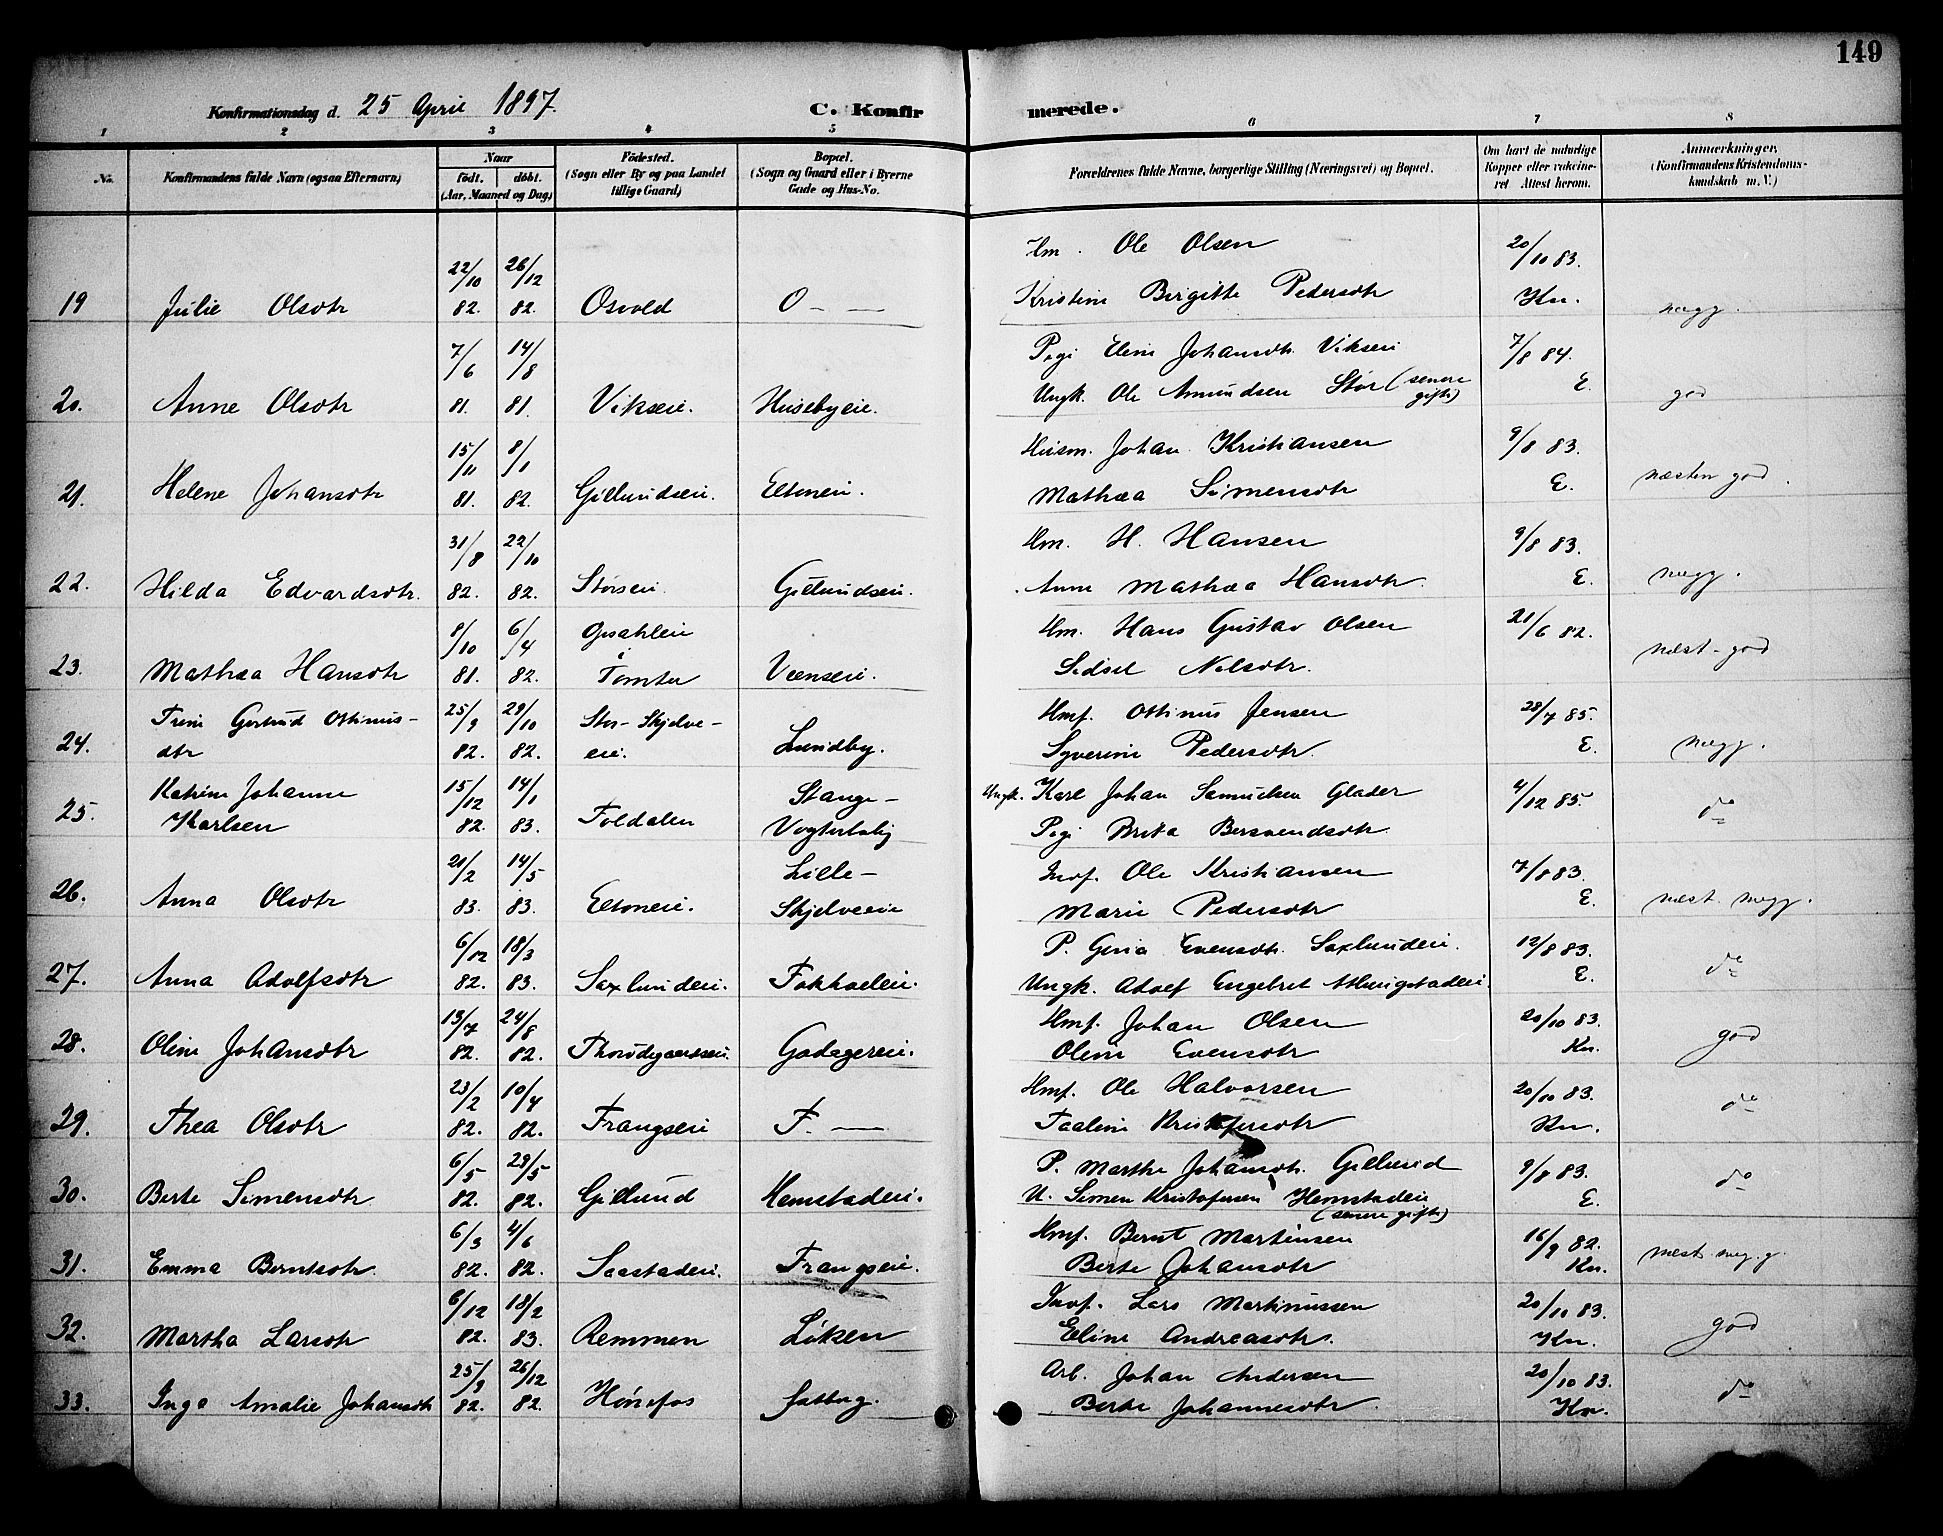 149
Konfirmationsdag d. 25 April 1897. C. Konfirmerede.
1 2 3 4 5 6 7 8
No. Konfirmandens fulde Navn (ogsaa Efternavn) Naar født. døbt. (Aar, Maaned og Dag) Fødested. (Sogn eller By og paa Landet tillige Gaard) Bopæl. (Sogn og Gaard eller i Byerne Gade og Hus-No. Forældrenes fulde Navne, borgerlige Stilling (Næringsvei) og Bopæl. Om havt de naturlige Kopper eller vakcineret Attest herom. Anmærkninger. (Konfirmandens Kristendomskundskab m. V.)
Hm. Ole Olsen 20/10 83.
22/10 26/12
19 Julie Olsdtr 82. 82. Osvold O — — Kristine Birgitte Pedersdtr Kn. megg.
7/6 14/8 Pigi Eline Johansdtr. Vikseie 7/8 84.
20. Anne Olsdtr 81. 81. Vikseie. Husebyeie. Ungk. Ole Amundsen Stør (senere gifte) E. god
15/11 8/1 Husm. Johan Kristiansen 9/8 83.
21. Helene Johansdtr 81. 82. Gillundseie. Eltoneie. Mathea Simensdtr E. næsten god.
31/8 22/10 Hm. H. Hansen 9/8 83.
22. Hilda Edvardsdtr. 82. 82. Størseie. Gillundseie. Anne Mathea Hansdtr. E. megg.
8/10 6/4 i Hm. Hans Gustav Olsen 21/6 82.
23. Mathea Hansdtr 81. 82. Tomter Veenseie. Sidsel Nilsdtr. næst-god
Trine Gertrud Ottinus- 25/9 29/10 Stor-Skjelve- Hmf. Ottinus Jensen 28/7 85.
24. dtr 82. 82. eie. Lundby. Syverine Pedersdtr. E. megg.
Katrine Johanne 15/12 14/1 Stange- Ungk. Karl Johan Samuelsen Glader 4/12 85.
25. Karlsen 82. 83. Foldalen Vogterbolig Pigi Brita Bersvendsdtr. do
21/2 14/5 Lille- Indf. Ole Kristiansen 7/8 83.
26. Anna Olsdtr 83. 83. Eltoneie. Skjelveeie Marie Pedersdtr E. næst. megg.
6/12 18/3 P. Gina Evensdtr. Saxlundeie. 12/8 83.
27. Anna Adolfsdtr 82. 83. Saxlundeie. Fokholeie. Ungk. Adolf Engebret Atlungstadeie. E. do
13/7 24/8 Hmf. Johan Olsen 20/10 83.
28. Oline Johansdtr 82. 82. Thorudgaardseie. Godagereie. Oline Evensdtr Kn. god
23/2 10/4 Hmf. Ole Halvorsen 20/10 83.
29. Thea Olsdtr 82. 82. Frangseie F. — Taaline Kristofersdtr Kn. do
6/5 29/5 P. Marthe Johansdtr. Gillund 9/8 83.
30. Berte Simensdtr 82. 82. Gillund Hemstadeie. U. Simen Kristofersen Hemstadeie (senere gifte) E. do
6/3 4/6 Hmf. Bernt Martinsen 16/9 82.
31. Emma Berntsdtr. 82. 82. Saastadeie. Frangseie. Berte Johansdtr Kn. næst. meg. g.
6/12 18/2 Indf. Lars Martinussen 20/10 83.
32. Martha Larsdtr 82. 83. Remmen Løken Eline Andreasdtr. Kn. god
25/9 26/12 Arb. Johan Andersen 20/10 83.
33. Inga Amalie Johansdtr 82. 82. Hønefos Berte Johannesdtr. Kn. do